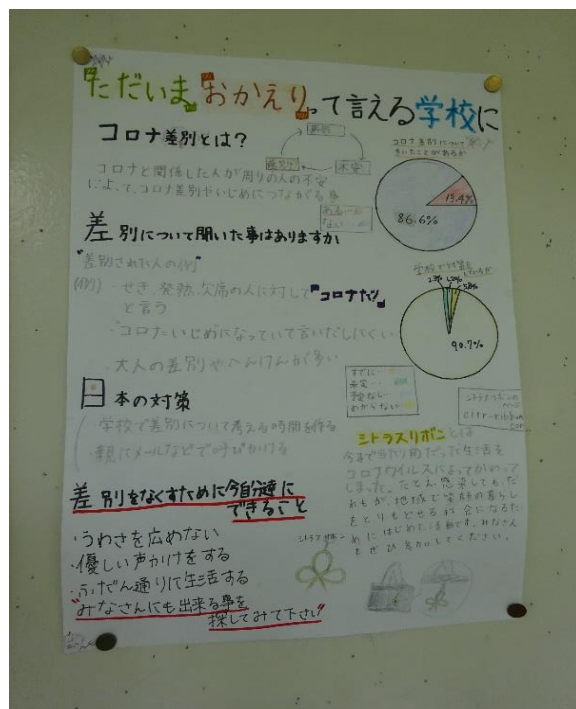 "ただいま" "おかえり"って言える学校に
コロナ差別とは?
差別
不安
コロナと関係した人が周りの人の不安
によって、コロナ差別やいじめにつながる事
コロナ差別について
きいたことがあるか
13.4%
86.6%
ある…
ない…
差別について聞いた事はありますか
"差別された人の例"
(例)・せき、発熱、欠席の人に対して"コロナだ!!"
と言う
・コロナいじめになっていて言いだしにくい
・大人の差別やへんけんが多い
学校で対策を
しているか
90.7%
すでに…
未定…
予定なら…
わからない…
日本の対策
・学校で差別について考える時間を作る
・親にメールなどで呼びかける
シトラスリボンの
シトラスリボンとは
今まで当たり前だった生活を
コロナウイルスによってかわって
しまった。たとえ感染しても、だ
れもが、地域で笑顔の暮らし
をとりもどせる社会になるた
めにはじめた活動です。みなさん
もぜひ参加してください。
シトラスリボン
差別をなくすために今自分達に
できること
・うわさを広めない
・優しい声かけをする
・ふだん通りに生活する
"みなさんにも出来る事を
探してみて下さい"